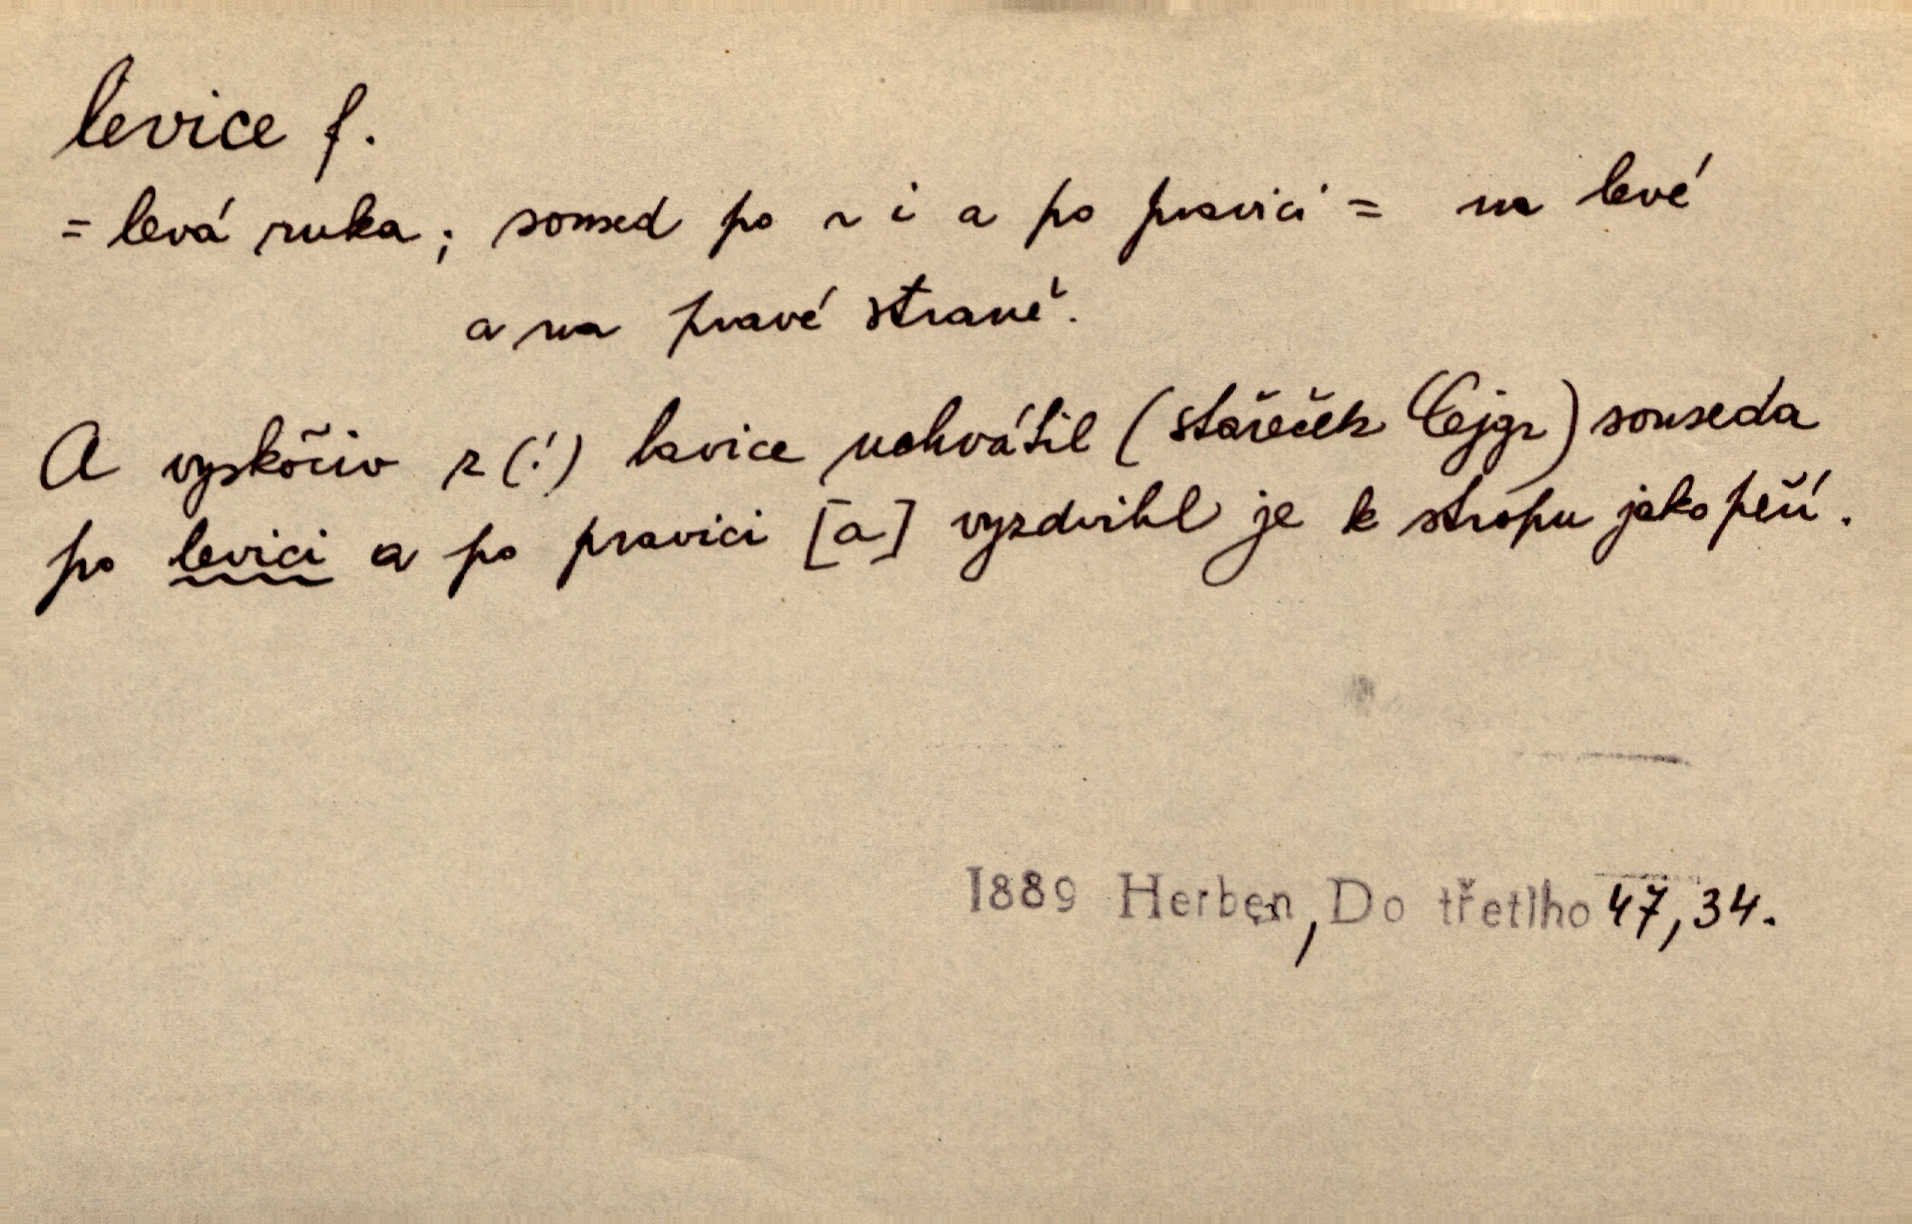 levice f.
= levá ruka; soused po ~ i a po pravici = na levé
a na pravé straně.
A vyskočiv z (!) lavice uchvátil (stařeček Cejgr) souseda
po levici a po pravici [a] vyzdvihl je k stropu jako peří.
1889 Herben, Do třetího 47,34.